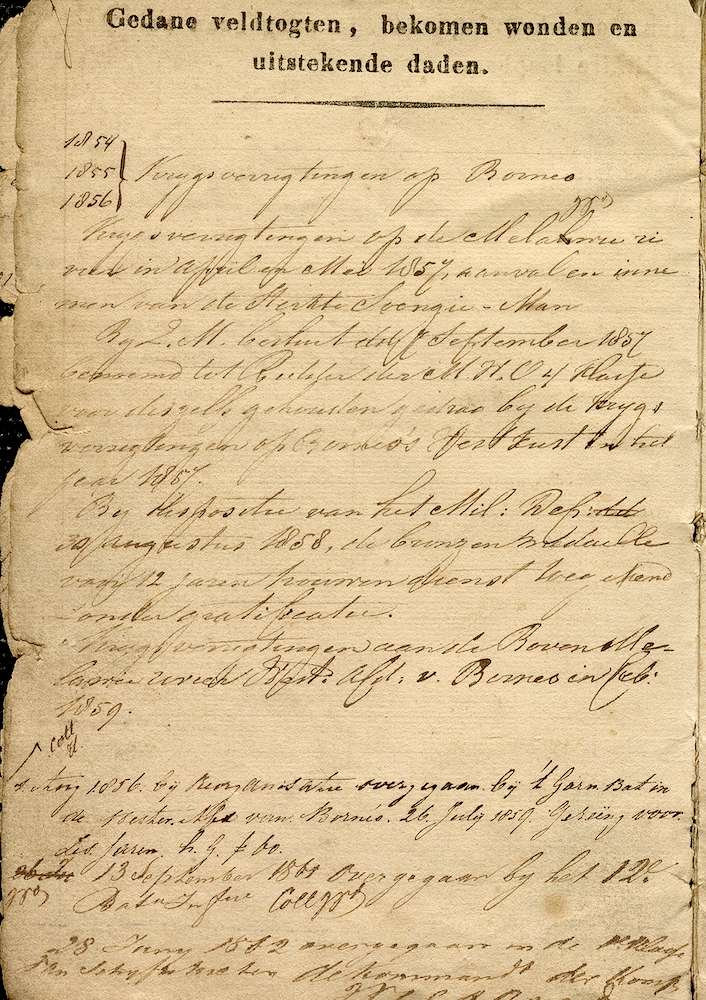 Gedane veldtogten, bekomen wonden en
uitstekende daden.
1854
1855
1856
Krygsverrigtingen op Borneo
Krygsverrigtingen op de Melahwie ri
vier in April en Mei 1857, aanval en inne
men van de Sterkte Soengie-Man
By Z. M. besluit dd September 1857
benoemd tot Ridder der M. W. O 4 klasse
voor deszelfs gehouden gedrag by de krygs
verrigtingen op Borneo's Westkust in het
jaar 1857.
By dispositie van het Mil: Dep: dd
30 augustus 1858, de bronzen medaille
voor 12 jaren trouwen dienst toegekend
zonder gratificatie.
Krygsverrigtingen aan de Boven Me-
lawie rivier West: Afd: v. Borneo in feb:
1859.
1856. by Reorganisatie overgegaan by 't Garn. Bat in
de Wester. Afd van Borneo. 26 July 1859 Gereëng. voor
Zes Jaren h. g. f
13 September 1860 overgegaan by het 12e
Bat n Infie Coll
28 Juny 1862 overgegaan in de klasse
den de kommandt der